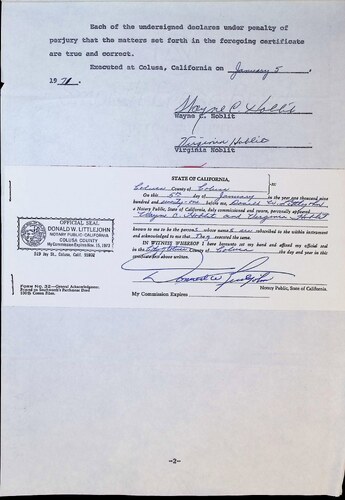 Each of the undersigned declares under penalty of
perjury that the matters set forth in the foregoing certificate
are true and correct.
Executed at Colusa, California on January 5,
1971.
Wayne C Hoblit
Wayne C. Hoblit
Virginia Hoblit
Virginia Hoblit
STATE OF CALIFORNIA,
County of Colusa
On this 5th day of January in the year one thousand nine
hundred and seventy-one before me Donald W. Littlejohn
a Notary Public, State of California, duly commissioned and sworn, personally appeared
Wayne C. Hoblit and Virginia Hoblit
known to me to be the person s whose name s are subscribed to the within instrument
and acknowledged to me that they executed the same.
IN WITNESS WHEREOF I have hereunto set my hand and affixed my official seal
in the County of Colusa the day and year in this
certificate first above written.
OFFICIAL SEAL
DONALD W. LITTLEJOHN
NOTARY PUBLIC-CALIFORNIA
COLUSA COUNTY
My Commission Expires Nov. 13, 1973
Jay St., Colusa, Calif. 95932
Notary Public, State of California.
My Commission Expires
FORM No. 32—General Acknowledgment
-2-